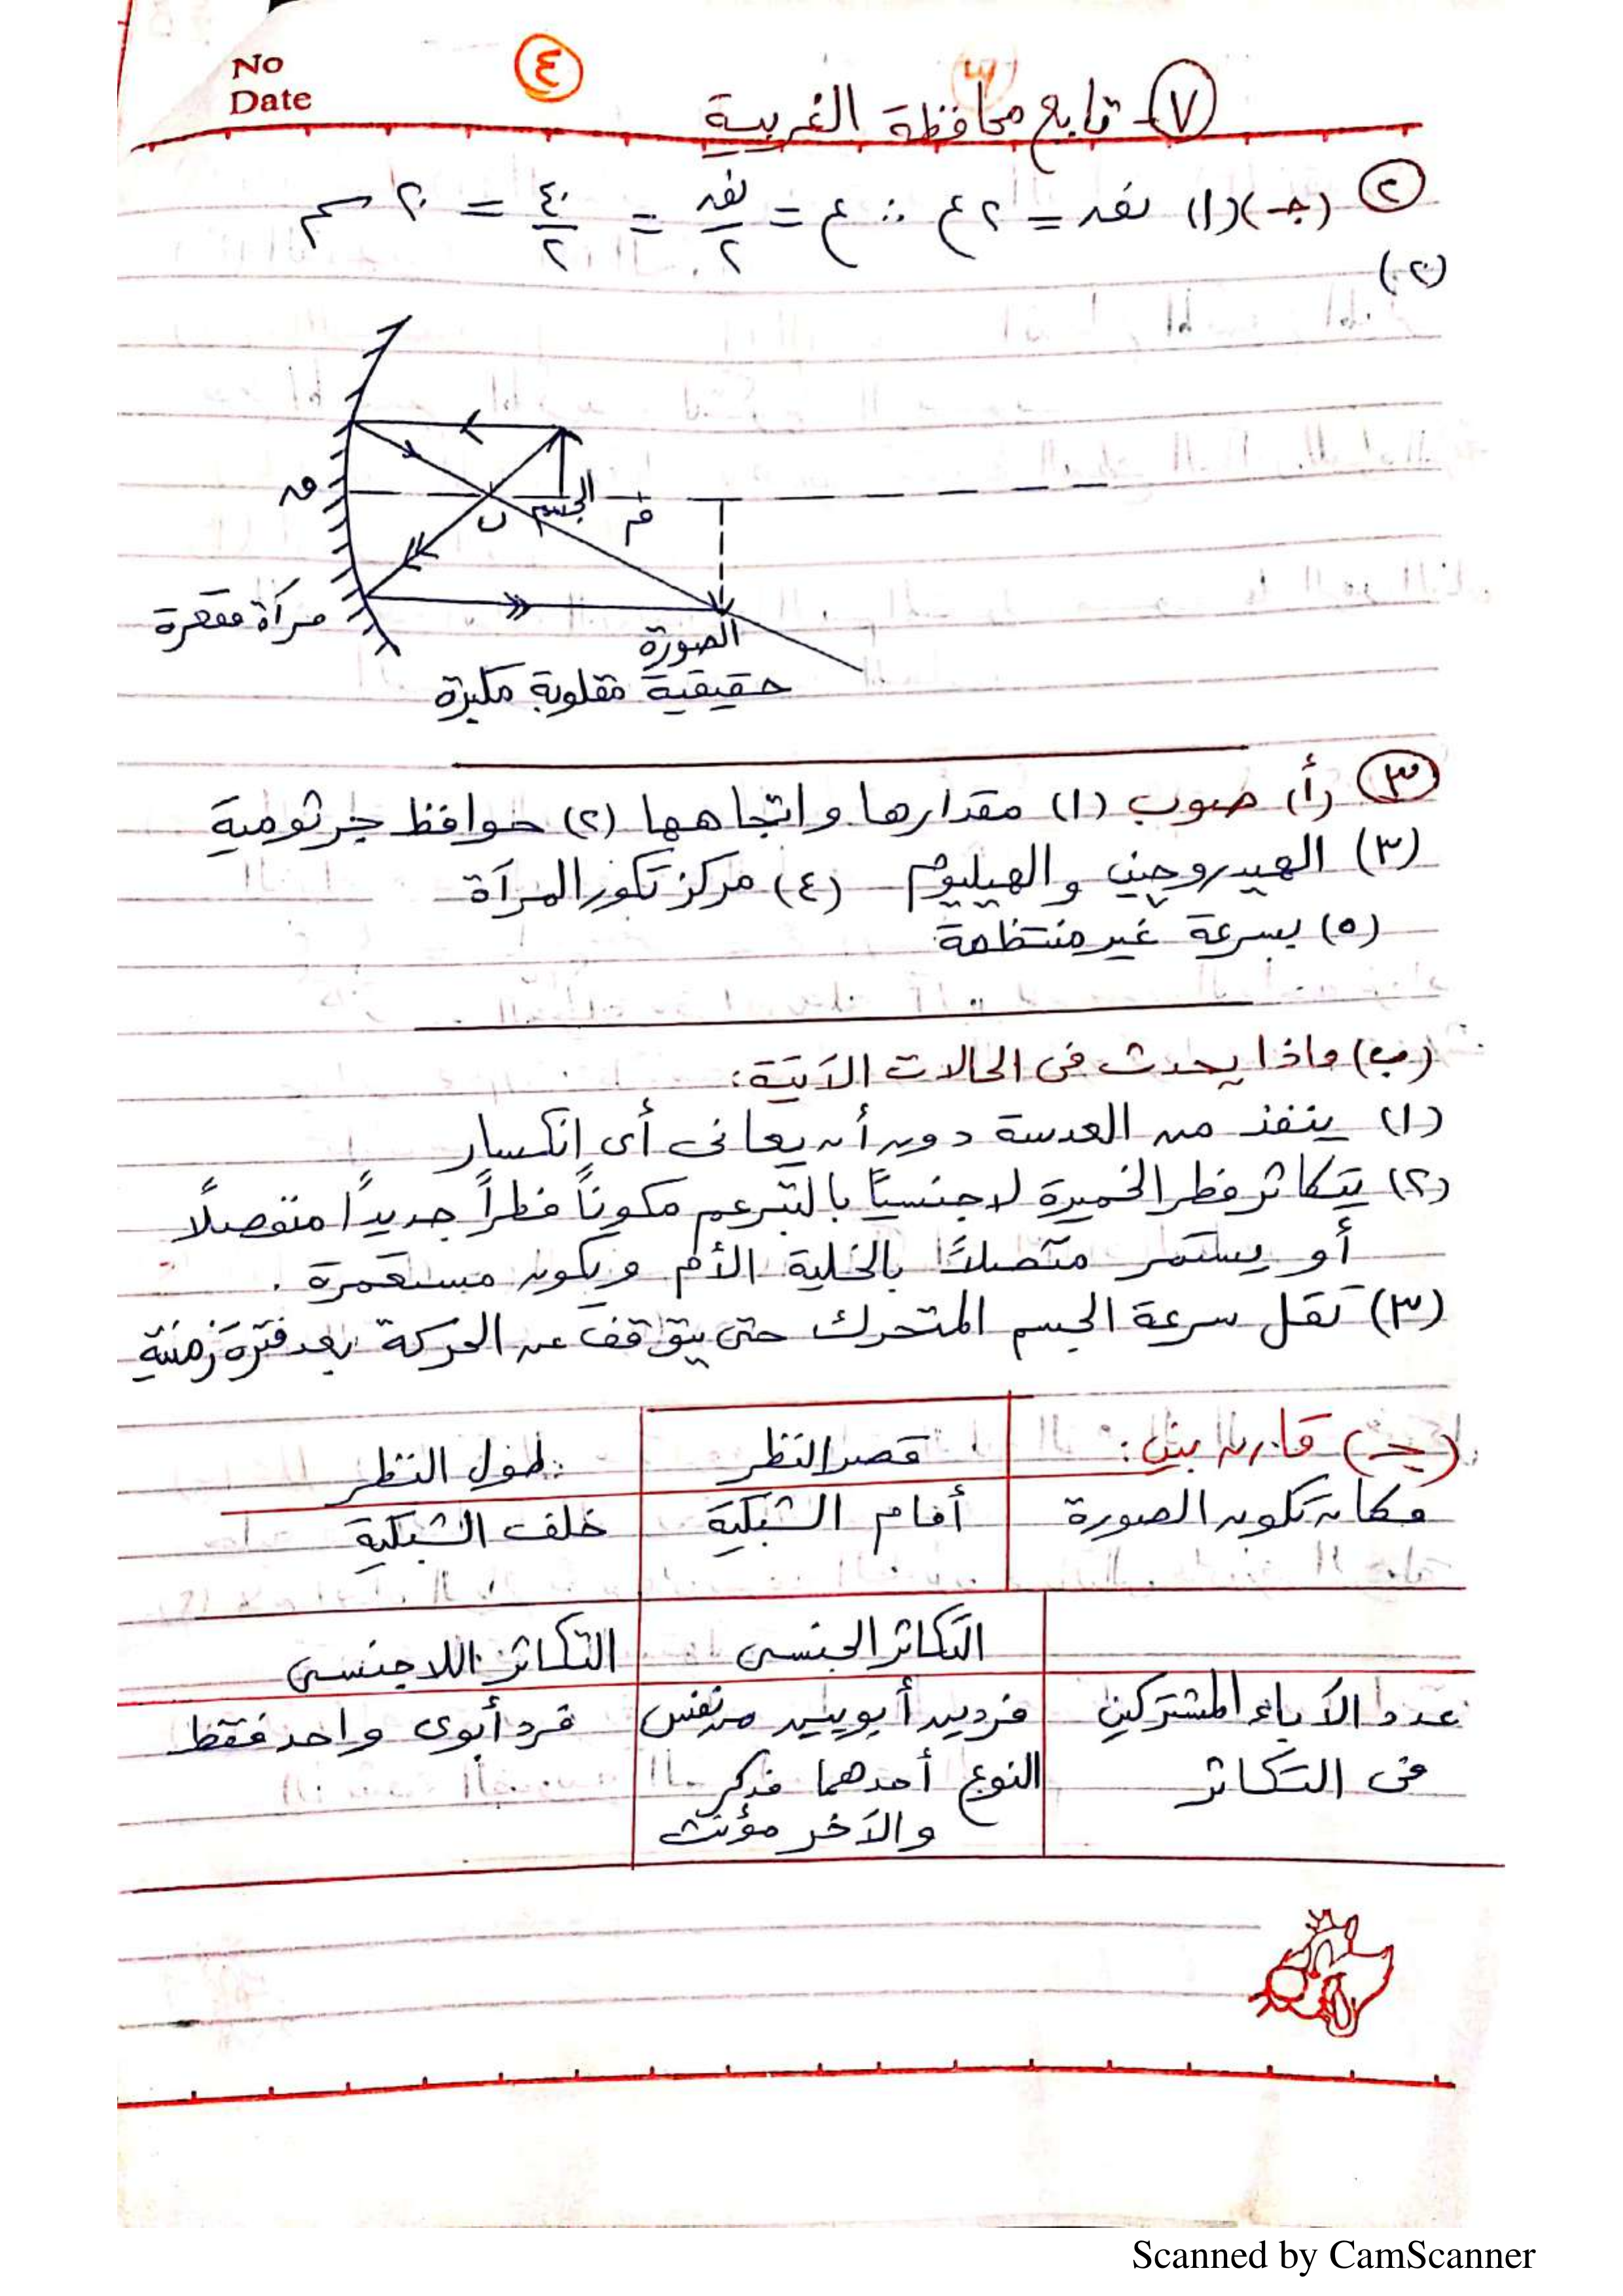 No
Date
٤
٧ - تابع محافظة الغربية
٢ (جـ) (١) نق = ٢ع ∴ ع = نق/٢ = ٤٠/٢ = ٢٠ سم
(٢)
ق
ب
الجسم
م
مرآة مقعرة
الصورة
حقيقية مقلوبة مكبرة
٣ (أ) صوب (١) مقدارها واتجاهها (٢) حوافظ جرثومية
(٣) الهيدروچين والهيليوم (٤) مركز تكور المرآة
(٥) بسرعة غير منتظمة
(ب) ماذا يحدث فى الحالات الآتية:
(١) ينفذ من العدسة دون أن يعانى أى إنكسار
(٢) يتكاثر فطر الخميرة لاجنسيًا بالتبرعم مكونًا فطرًا جديدًا منفصلًا
أو يستمر متصلًا بالخلية الأم ويكون مستعمرة .
(٣) تقل سرعة الجسم المتحرك حتى يتوقف عن الحركة بعد فترة زمنية
(جـ) قارن بين: قصر النظر طول النظر
مكان تكون الصورة أمام الشبكية خلف الشبكية
التكاثر الجنسى التكاثر اللاجنسى
عدد الآباء المشتركين فردين أبويين من نفس فرد أبوى واحد فقط
فى التكاثر النوع أحدهما مذكر
والآخر مؤنث
Scanned by CamScanner